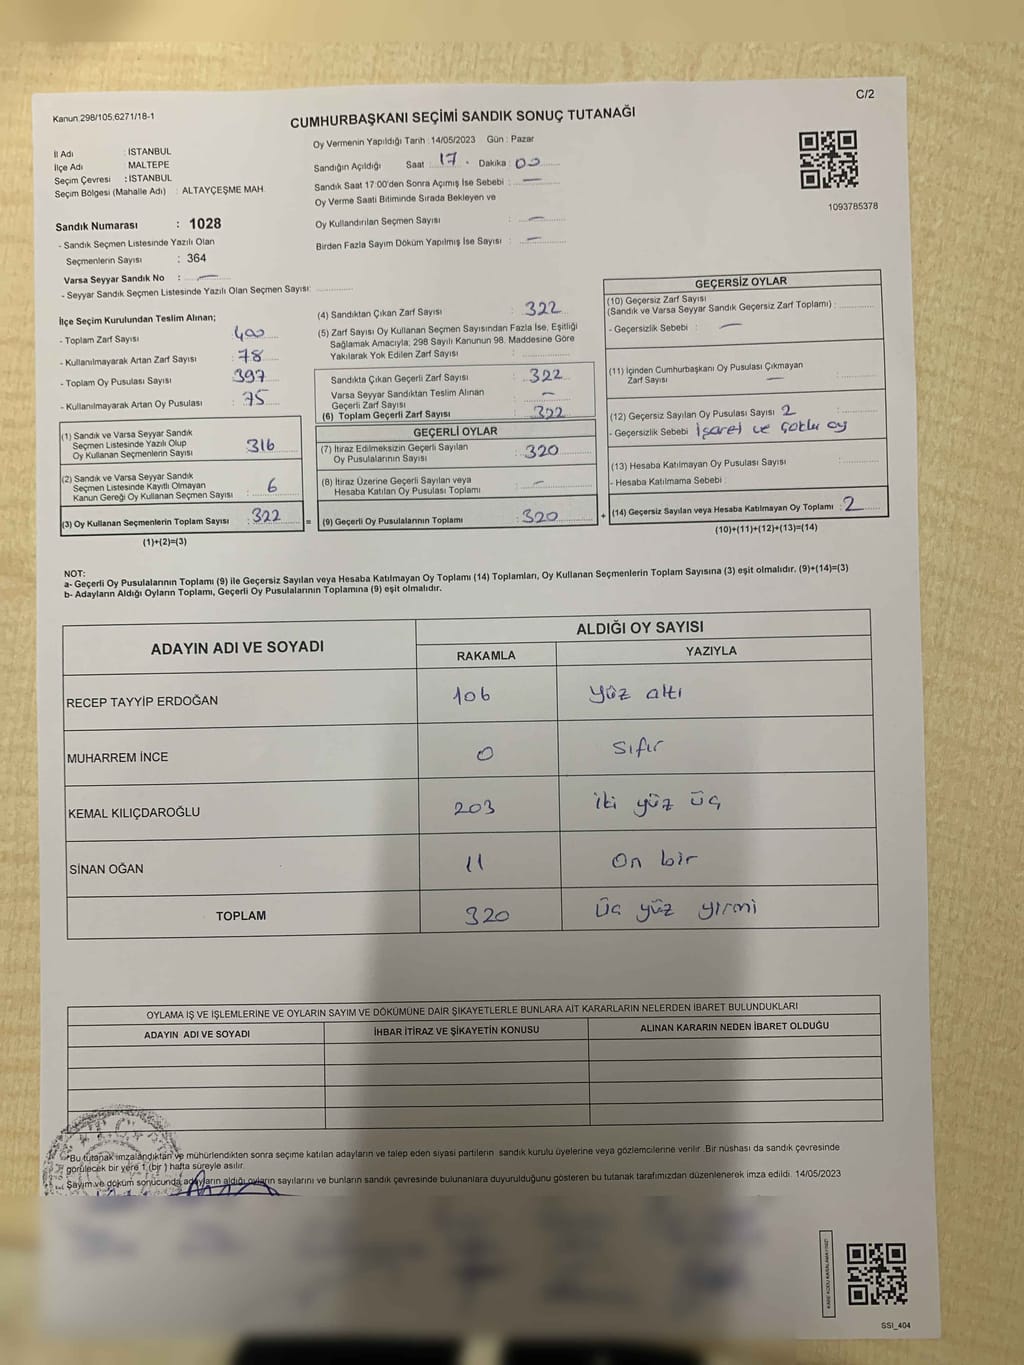 C/2
Kanun 298/105,6271/18-1
CUMHURBAŞKANI SEÇİMİ SANDIK SONUÇ TUTANAĞI
Oy Vermenin Yapıldığı Tarih : 14/05/2023 Gün : Pazar
İl Adı : İSTANBUL
İlçe Adı : MALTEPE
Seçim Çevresi : İSTANBUL
Seçim Bölgesi (Mahalle Adı) : ALTAYÇEŞME MAH.
Sandığın Açıldığı Saat : 17 . Dakika : 00
Sandık Saat 17:00'den Sonra Açılmış İse Sebebi : —
Oy Verme Saati Bitiminde Sırada Bekleyen ve
Oy Kullandırılan Seçmen Sayısı : —
Birden Fazla Sayım Döküm Yapılmış İse Sayısı : —
1093785378
Sandık Numarası : 1028
- Sandık Seçmen Listesinde Yazılı Olan
Seçmenlerin Sayısı : 364
Varsa Seyyar Sandık No : —
- Seyyar Sandık Seçmen Listesinde Yazılı Olan Seçmen Sayısı:
İlçe Seçim Kurulundan Teslim Alınan;
- Toplam Zarf Sayısı : 400
- Kullanılmayarak Artan Zarf Sayısı : 78
- Toplam Oy Pusulası Sayısı : 397
- Kullanılmayarak Artan Oy Pusulası : 75
(1) Sandık ve Varsa Seyyar Sandık
Seçmen Listesinde Yazılı Olup
Oy Kullanan Seçmenlerin Sayısı : 316
(2) Sandık ve Varsa Seyyar Sandık
Seçmen Listesinde Kayıtlı Olmayan
Kanun Gereği Oy Kullanan Seçmen Sayısı : 6
(3) Oy Kullanan Seçmenlerin Toplam Sayısı : 322
(1)+(2)=(3)
(4) Sandıktan Çıkan Zarf Sayısı : 322
(5) Zarf Sayısı Oy Kullanan Seçmen Sayısından Fazla İse, Eşitliği
Sağlamak Amacıyla; 298 Sayılı Kanunun 98. Maddesine Göre
Yakılarak Yok Edilen Zarf Sayısı :
Sandıkta Çıkan Geçerli Zarf Sayısı : 322
Varsa Seyyar Sandıktan Teslim Alınan
Geçerli Zarf Sayısı : —
(6) Toplam Geçerli Zarf Sayısı : 322
GEÇERLİ OYLAR
(7) İtiraz Edilmeksizin Geçerli Sayılan
Oy Pusulalarının Sayısı : 320
(8) İtiraz Üzerine Geçerli Sayılan veya
Hesaba Katılan Oy Pusulası Toplamı : —
= (9) Geçerli Oy Pusulalarının Toplamı : 320 +
GEÇERSİZ OYLAR
(10) Geçersiz Zarf Sayısı
(Sandık ve Varsa Seyyar Sandık Geçersiz Zarf Toplamı) :
- Geçersizlik Sebebi : —
(11) İçinden Cumhurbaşkanı Oy Pusulası Çıkmayan
Zarf Sayısı : —
(12) Geçersiz Sayılan Oy Pusulası Sayısı 2 :
- Geçersizlik Sebebi İşaret ve Çoklu oy
(13) Hesaba Katılmayan Oy Pusulası Sayısı :
- Hesaba Katılmama Sebebi :
(14) Geçersiz Sayılan veya Hesaba Katılmayan Oy Toplamı : 2
(10)+(11)+(12)+(13)=(14)
NOT:
a- Geçerli Oy Pusulalarının Toplamı (9) ile Geçersiz Sayılan veya Hesaba Katılmayan Oy Toplamı (14) Toplamları, Oy Kullanan Seçmenlerin Toplam Sayısına (3) eşit olmalıdır. (9)+(14)=(3)
b- Adayların Aldığı Oyların Toplamı, Geçerli Oy Pusulalarının Toplamına (9) eşit olmalıdır.
ADAYIN ADI VE SOYADI ALDIĞI OY SAYISI
RAKAMLA YAZIYLA
RECEP TAYYİP ERDOĞAN 106 yüz altı
MUHARREM İNCE 0 sıfır
KEMAL KILIÇDAROĞLU 203 iki yüz üç
SİNAN OĞAN 11 On bir
TOPLAM 320 Üç yüz yirmi
OYLAMA İŞ VE İŞLEMLERİNE VE OYLARIN SAYIM VE DÖKÜMÜNE DAİR ŞİKAYETLERLE BUNLARA AİT KARARLARIN NELERDEN İBARET BULUNDUKLARI
ADAYIN ADI VE SOYADI İHBAR İTİRAZ VE ŞİKAYETİN KONUSU ALINAN KARARIN NEDEN İBARET OLDUĞU
Bu tutanak imzalandıktan ve mühürlendikten sonra seçime katılan adayların ve talep eden siyasi partilerin sandık kurulu üyelerine veya gözlemcilerine verilir. Bir nüshası da sandık çevresinde
görülecek bir yere 1 (bir) hafta süreyle asılır.
Sayım ve döküm sonucunda adayların aldığı oyların sayılarını ve bunların sandık çevresinde bulunanlara duyurulduğunu gösteren bu tutanak tarafımızdan düzenlenerek imza edildi. 14/05/2023
SSI_404